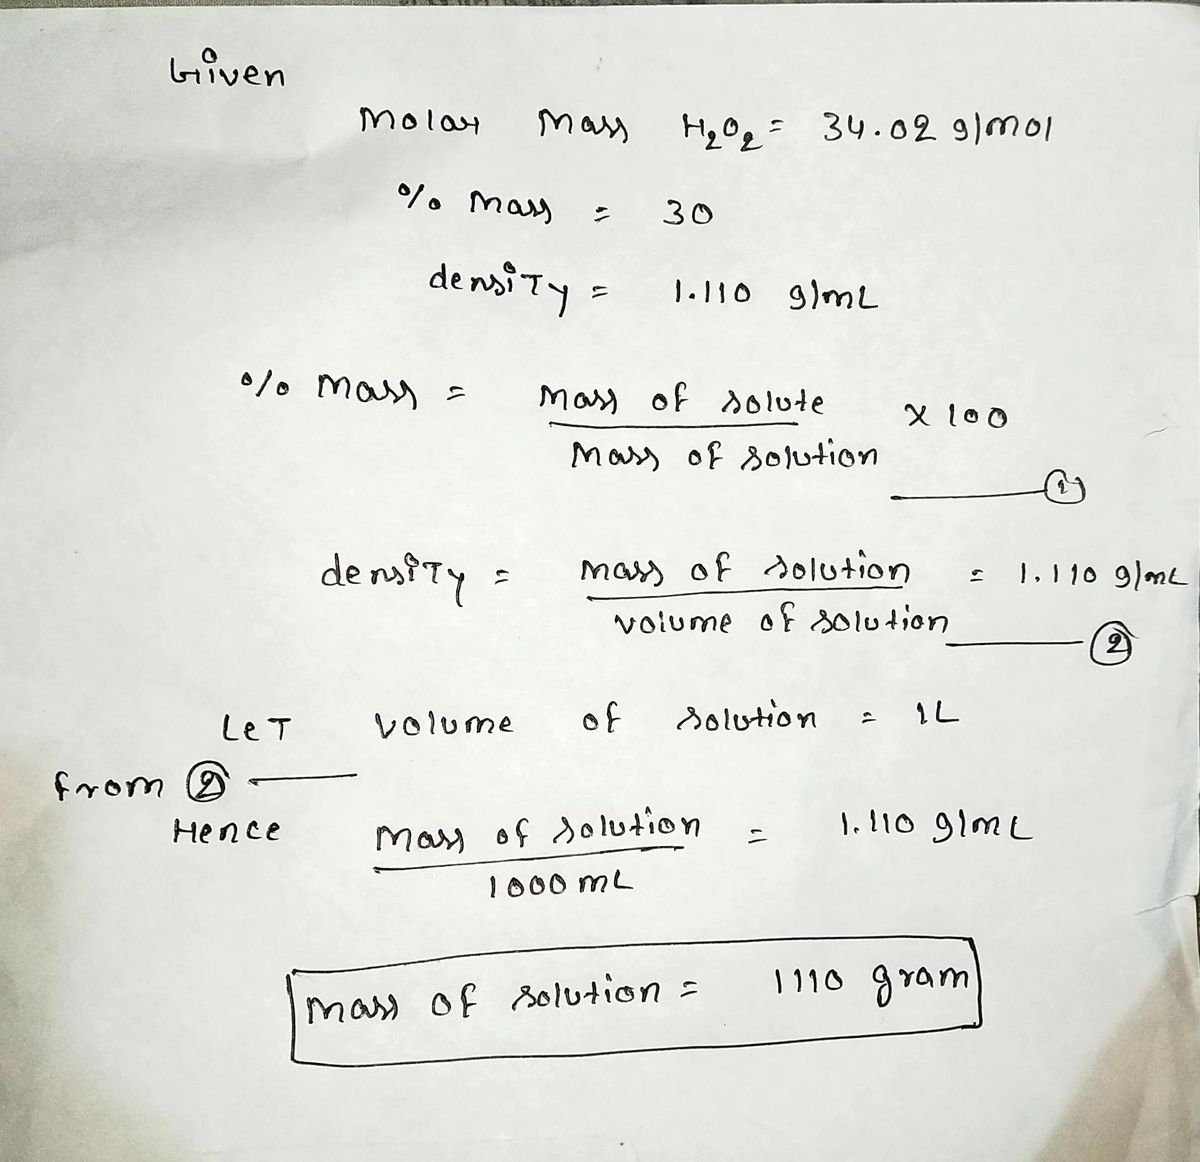 Given
Molar Mass H₂O₂ = 34.02 g/mol
% Mass = 30
density = 1.110 g/mL
% Mass = Mass of solute × 100
Mass of solution
①
density = mass of solution = 1.110 g/mL
volume of solution
②
Let volume of solution = 1L
from ②
Hence Mass of solution = 1.110 g/mL
1000 mL
Mass of solution = 1110 gram